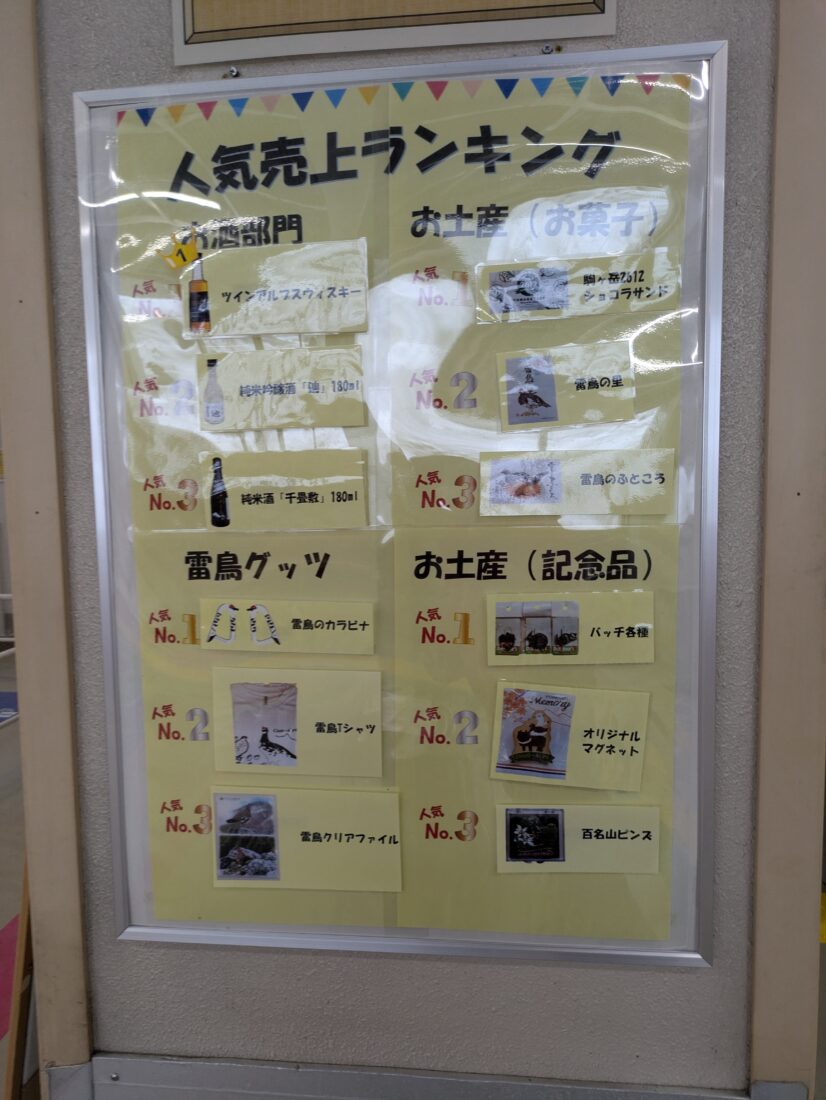 人気売上ランキング
お酒部門
人気
No.1
ツインアルプスウィスキー
人気
No.2
純米吟醸酒「辿」180ml
人気
No.3
純米酒「千畳敷」180ml
お土産（お菓子）
人気
No.1
駒ヶ岳2612
ショコラサンド
人気
No.2
雷鳥の里
人気
No.3
雷鳥のふところ
雷鳥グッツ
人気
No.1
雷鳥のカラビナ
人気
No.2
雷鳥Tシャツ
人気
No.3
雷鳥クリアファイル
お土産（記念品）
人気
No.1
バッチ各種
人気
No.2
Memory
オリジナル
マグネット
人気
No.3
百名山ピンズ